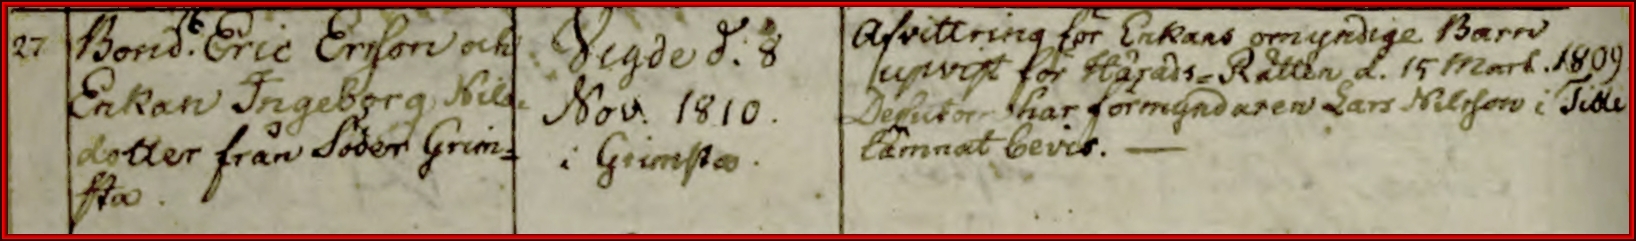 27 Bond. Eric Ersson och
Enkan Ingeborg Nils-
dotter från Söder Grim=
sta.
Vigde d. 8
Nov. 1810.
i Grimsta.
Afvittring för Enkans omyndige Barn
upvist för Härads=Rätten d. 15 Mart. 1809
har förmyndaren Lars Nilsson i
lämnat bevis. —